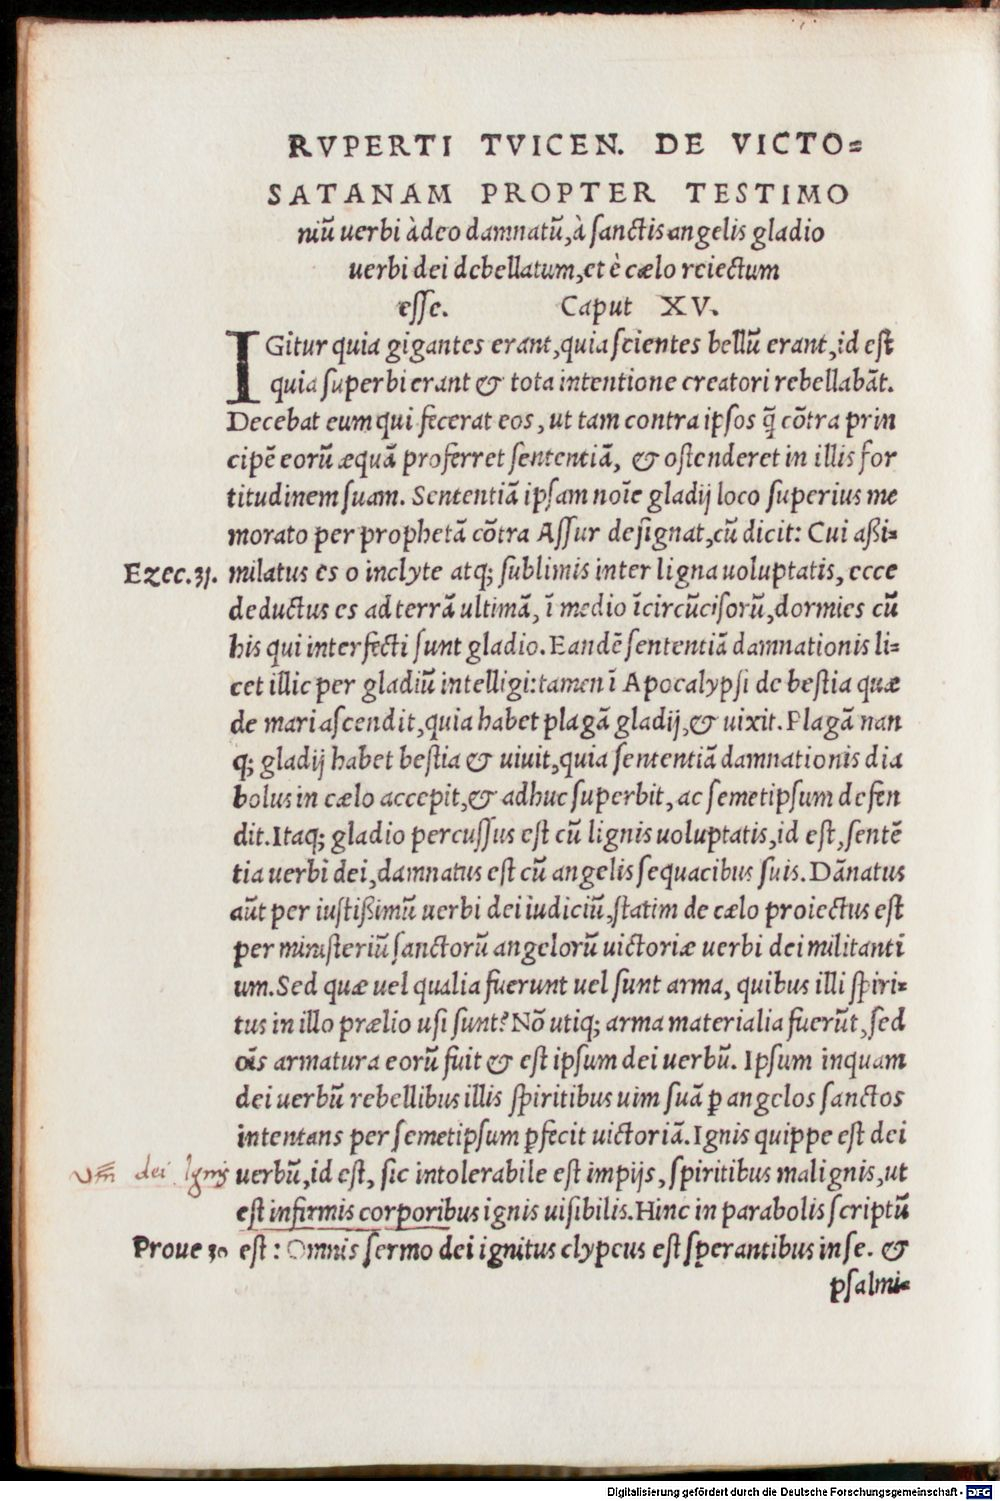 RVPERTI TVICEN. DE VICTO=
SATANAM PROPTER TESTIMO
niũ uerbi àdeo damnatũ, à ſanctis angelis gladio
uerbi dei debellatum, et è cælo reiectum
eſſe. Caput XV.
IGitur quia gigantes erant, quia ſcientes bellũ erant, id eſt
quia ſuperbi erant & tota intentione creatori rebellabãt.
Decebat eum qui fecerat eos, ut tam contra ipſos q̃ cõtra prin
cipẽ eorũ æquã proferret ſententiã, & oſtenderet in illis for
titudinem ſuam. Sententiã ipſam noĩe gladij loco ſuperius me
morato per prophetã cõtra Aſſur deſignat, cũ dicit: Cui aßi=
Ezec. 31. milatus es o inclyte atq; ſublimis inter ligna uoluptatis, ecce
deductus es ad terrã ultimã, ĩ medio ĩcircũciſorũ, dormies cũ
his qui interfecti ſunt gladio. Eandẽ ſententiã damnationis li=
cet illic per gladiũ intelligi: tamen ĩ Apocalypſi de beſtia quæ
de mari aſcendit, quia habet plagã gladij, & uixit. Plagã nan
q; gladij habet beſtia & uiuit, quia ſententiã damnationis dia
bolus in cælo accepit, & adhuc ſuperbit, ac ſemetipſum defen
dit. Itaq; gladio percuſſus eſt cũ lignis uoluptatis, id eſt, ſentẽ
tia uerbi dei, damnatus eſt cũ angelis ſequacibus ſuis. Dãnatus
aũt per iuſtißimũ uerbi dei iudiciũ, ſtatim de cælo proiectus eſt
per miniſteriũ ſanctorũ angelorũ uictoriæ uerbi dei militanti
um. Sed quæ uel qualia fuerunt uel ſunt arma, quibus illi ſpiri=
tus in illo prælio uſi ſunt? Nõ utiq; arma materialia fuerũt, ſed
oĩs armatura eorũ fuit & eſt ipſum dei uerbũ. Ipſum inquam
dei uerbũ rebellibus illis ſpiritibus uim ſuã ꝑ angelos ſanctos
intentans per ſemetipſum ꝑfecit uictoriã. Ignis quippe eſt dei
dei Ignis uerbũ, id eſt, ſic intolerabile eſt impijs, ſpiritibus malignis, ut
eſt infirmis corporibus ignis uiſibilis. Hinc in parabolis ſcriptũ
Proue 30 eſt: Omnis ſermo dei ignitus clypeus eſt ſperantibus in ſe. &
pſalmi=
Digitalisierung gefördert durch die Deutsche Forschungsgemeinschaft - DFG